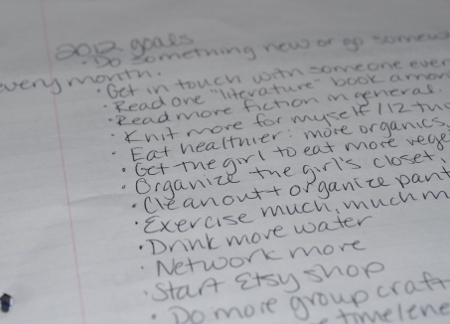 2012 goals
· Do something new or go somew
every month.
· Get in touch with someone ever
· Read one "literature" book a mon
· Read more fiction in general.
· Knit more for myself/12 thi
· Eat healthier: more organics,
· Get the girl to eat more vege
· Organize the girl's closet,
· Clean out + organize pant
· Exercise much, much m
· Drink more water
· Network more
· Start Etsy shop
· Do more group craft
timeline